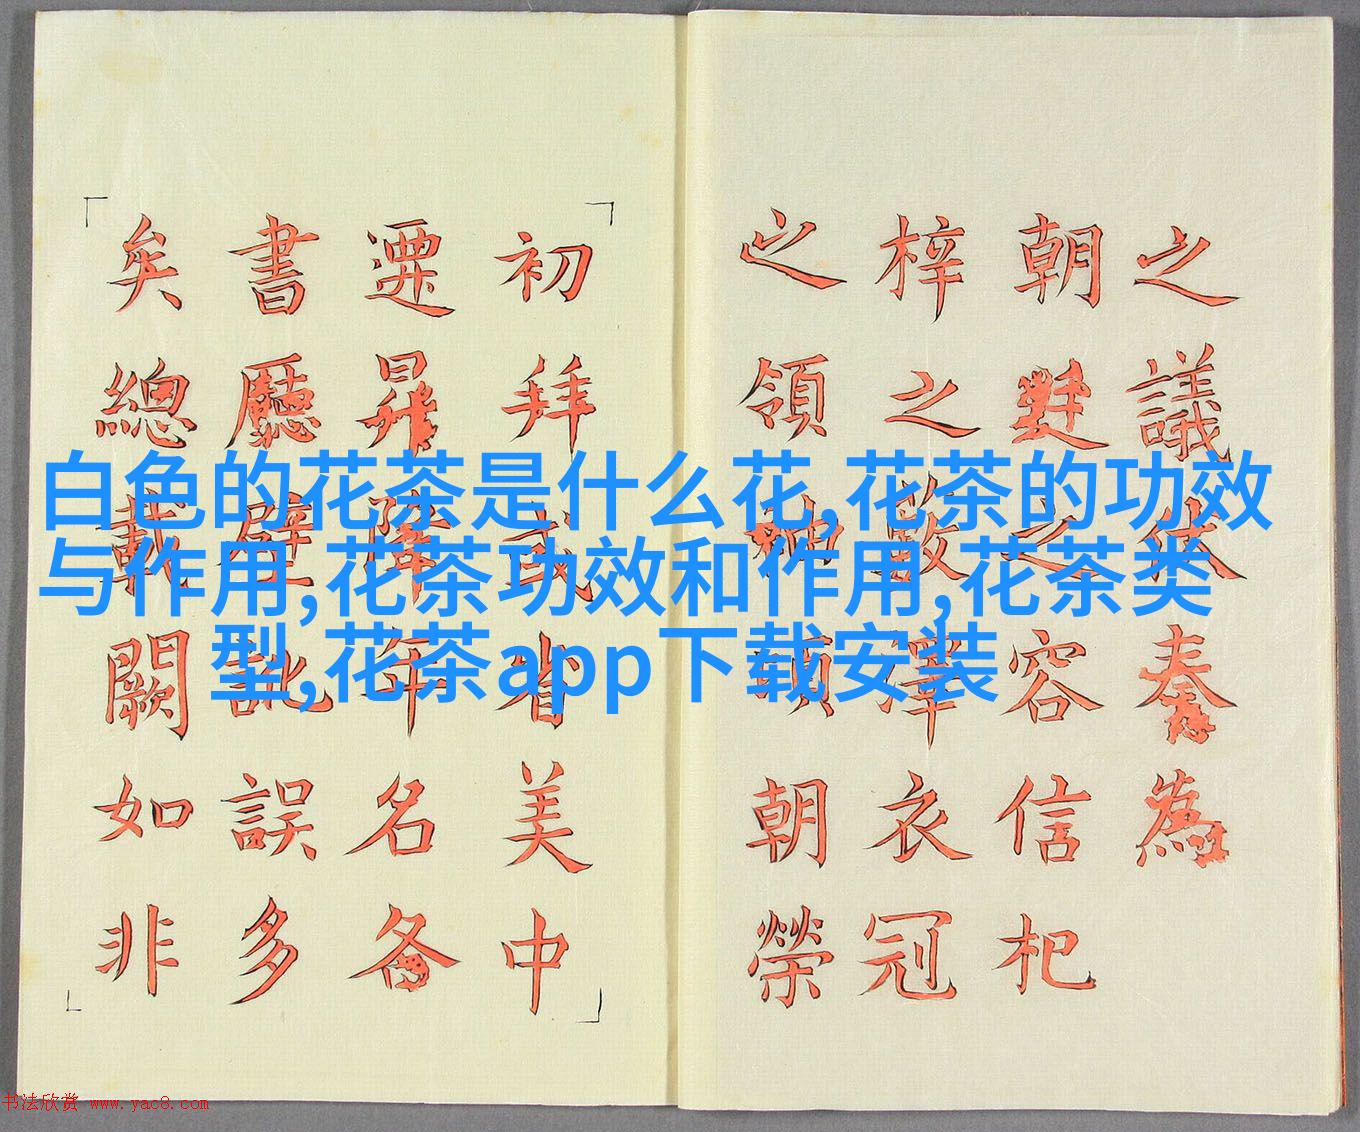 白色的花茶是什么花,花茶的功效
与作用,花茶功效和作用,花茶类
型,花茶app下载安装
之議奏為
朝之容信杞
梓之澤衣冠
之領朝榮
初拜省美中
遷昇降年名备
書廳壁訛誤多
矣總載闕如非
书法欣赏 www.yac8.com